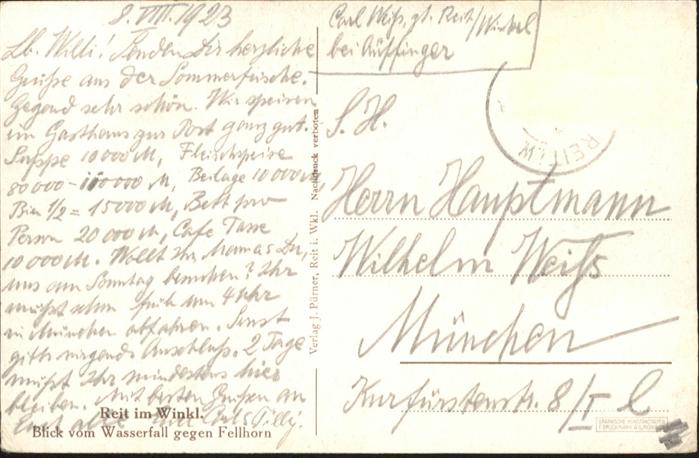 8. VIII 1923
Lb. Willi! Senden Dir herzliche
Grüße aus der Sommerfrische.
Gegend sehr schön. Wir speisen
im Gasthaus zur Post ganz gut.
Suppe 10 000 M, Fleischspeise
80 000 - 100 000 M, Beilage 10 000 M
Bier 1/2 = 15 000 M, Bett pro
Person 20 000 M, Cafe Tasse
10 000 M. Wollt Ihr, Mama & Du,
uns am Sonntag besuchen? Ihr
müßt schon früh um 4 Uhr
in München abfahren. Sonst
gibts nirgends Anschluß. 2 Tage
müßt Ihr mindestens hier
bleiben. Mit besten Grüßen an
Euch alle
Reit im Winkl.
Blick vom Wasserfall gegen Fellhorn
Verlag J. Pürner, Reit i. Wkl. Nachdruck verboten
Carl Weiß, gt. Reit/Winkel
bei
REIT i. W
S. H.
Herrn Hauptmann
Wilhelm Weiß
München
Kurfürstenstr. 8/I l